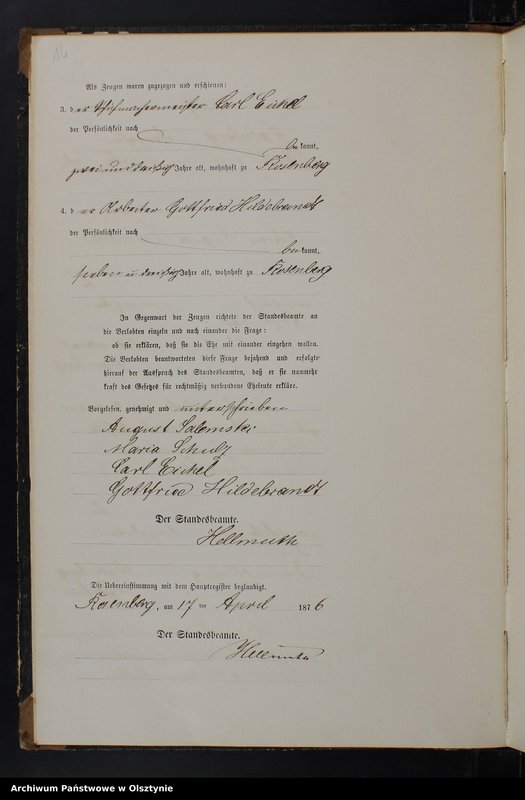 14
Als Zeugen waren zugezogen und erschienen:
3. der Schuhmachermeister Carl Eichel
der Persönlichkeit nach
bekannt,
zweiunddreißig Jahre alt, wohnhaft zu Rosenberg
4. der Arbeiter Gottfried Hildebrandt
der Persönlichkeit nach
bekannt,
sieben u dreißig Jahre alt, wohnhaft zu Rosenberg
In Gegenwart der Zeugen richtete der Standesbeamte an
die Verlobten einzeln und nach einander die Frage:
ob sie erklären, daß sie die Ehe mit einander eingehen wollen.
Die Verlobten beantworteten diese Frage bejahend und erfolgte
hierauf der Ausspruch des Standesbeamten, daß er sie nunmehr
kraft des Gesetzes für rechtmäßig verbundene Eheleute erkläre.
Vorgelesen, genehmigt und unterschrieben
August Salemski
Maria Schulz
Carl Eichel
Gottfried Hildebrandt
Der Standesbeamte.
Hellmuth
Die Uebereinstimmung mit dem Hauptregister beglaubigt.
Rosenberg, am 17 ten April 1876
Der Standesbeamte.
Hellmuth
Archiwum Państwowe w Olsztynie